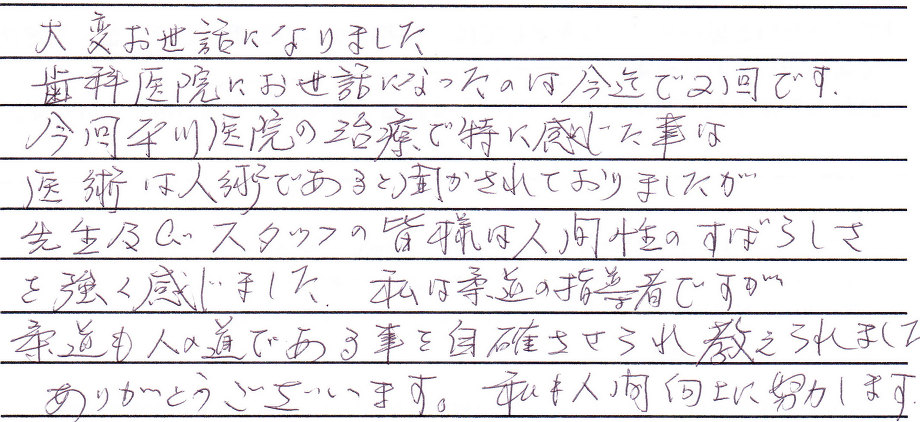 大変お世話になりました
歯科医院にお世話になったのは今迄で2回です.
今回平川医院の治療で特に感じた事は
医術は人術であると聞かされておりましたが
先生及びスタッフの皆様は人間性のすばらしさ
を強く感じました. 私は柔道の指導者ですが
柔道も人の道である事を自確させられ教えられました
ありがとうございます。私も人間向上に努力します.